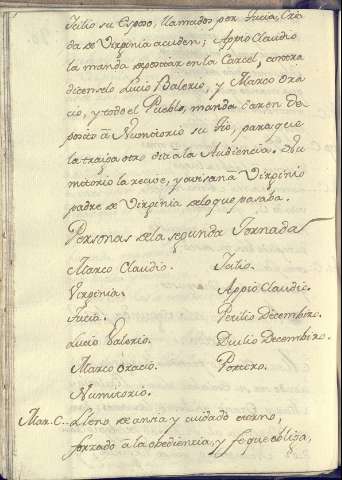 Icilio su Esposo, llamados por Lucia, Cria
da de Virginia acuden; Appio Claudio
la manda depositar en la Carcel, contra
dicenselo Lucio Balerio, y Marco Ora
cio, y todo el Pueblo, manda dar en De
posito â Numitorio su tio, para que
la traiga otro dia â la Audiencia. Nu
mitorio la recive, y avisan â Virginio
padre de Virginia de lo que pasaba.
Personas de la segunda Jornada
Marco Claudio. Icilio.
Virginia. Appio Claudio.
Lucia. Petilio Decembiro.
Lucio Valerio. Duilio Decembiro.
Marco Oracio. Portero.
Numitorio.
Mar. C.. Lleno de ansia y cuidado eterno,
forzado â la obediencia, y fe que obliga,